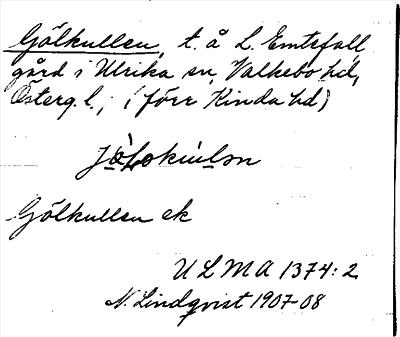 Gölkullen, t. å L. Emtefall
gård i Ulrika sn, Valkebo hd,
Österg. l.; (förr Kinda hd)
Gölkullen ek
ULMA 1374:2
N. Lindqvist 1907-08